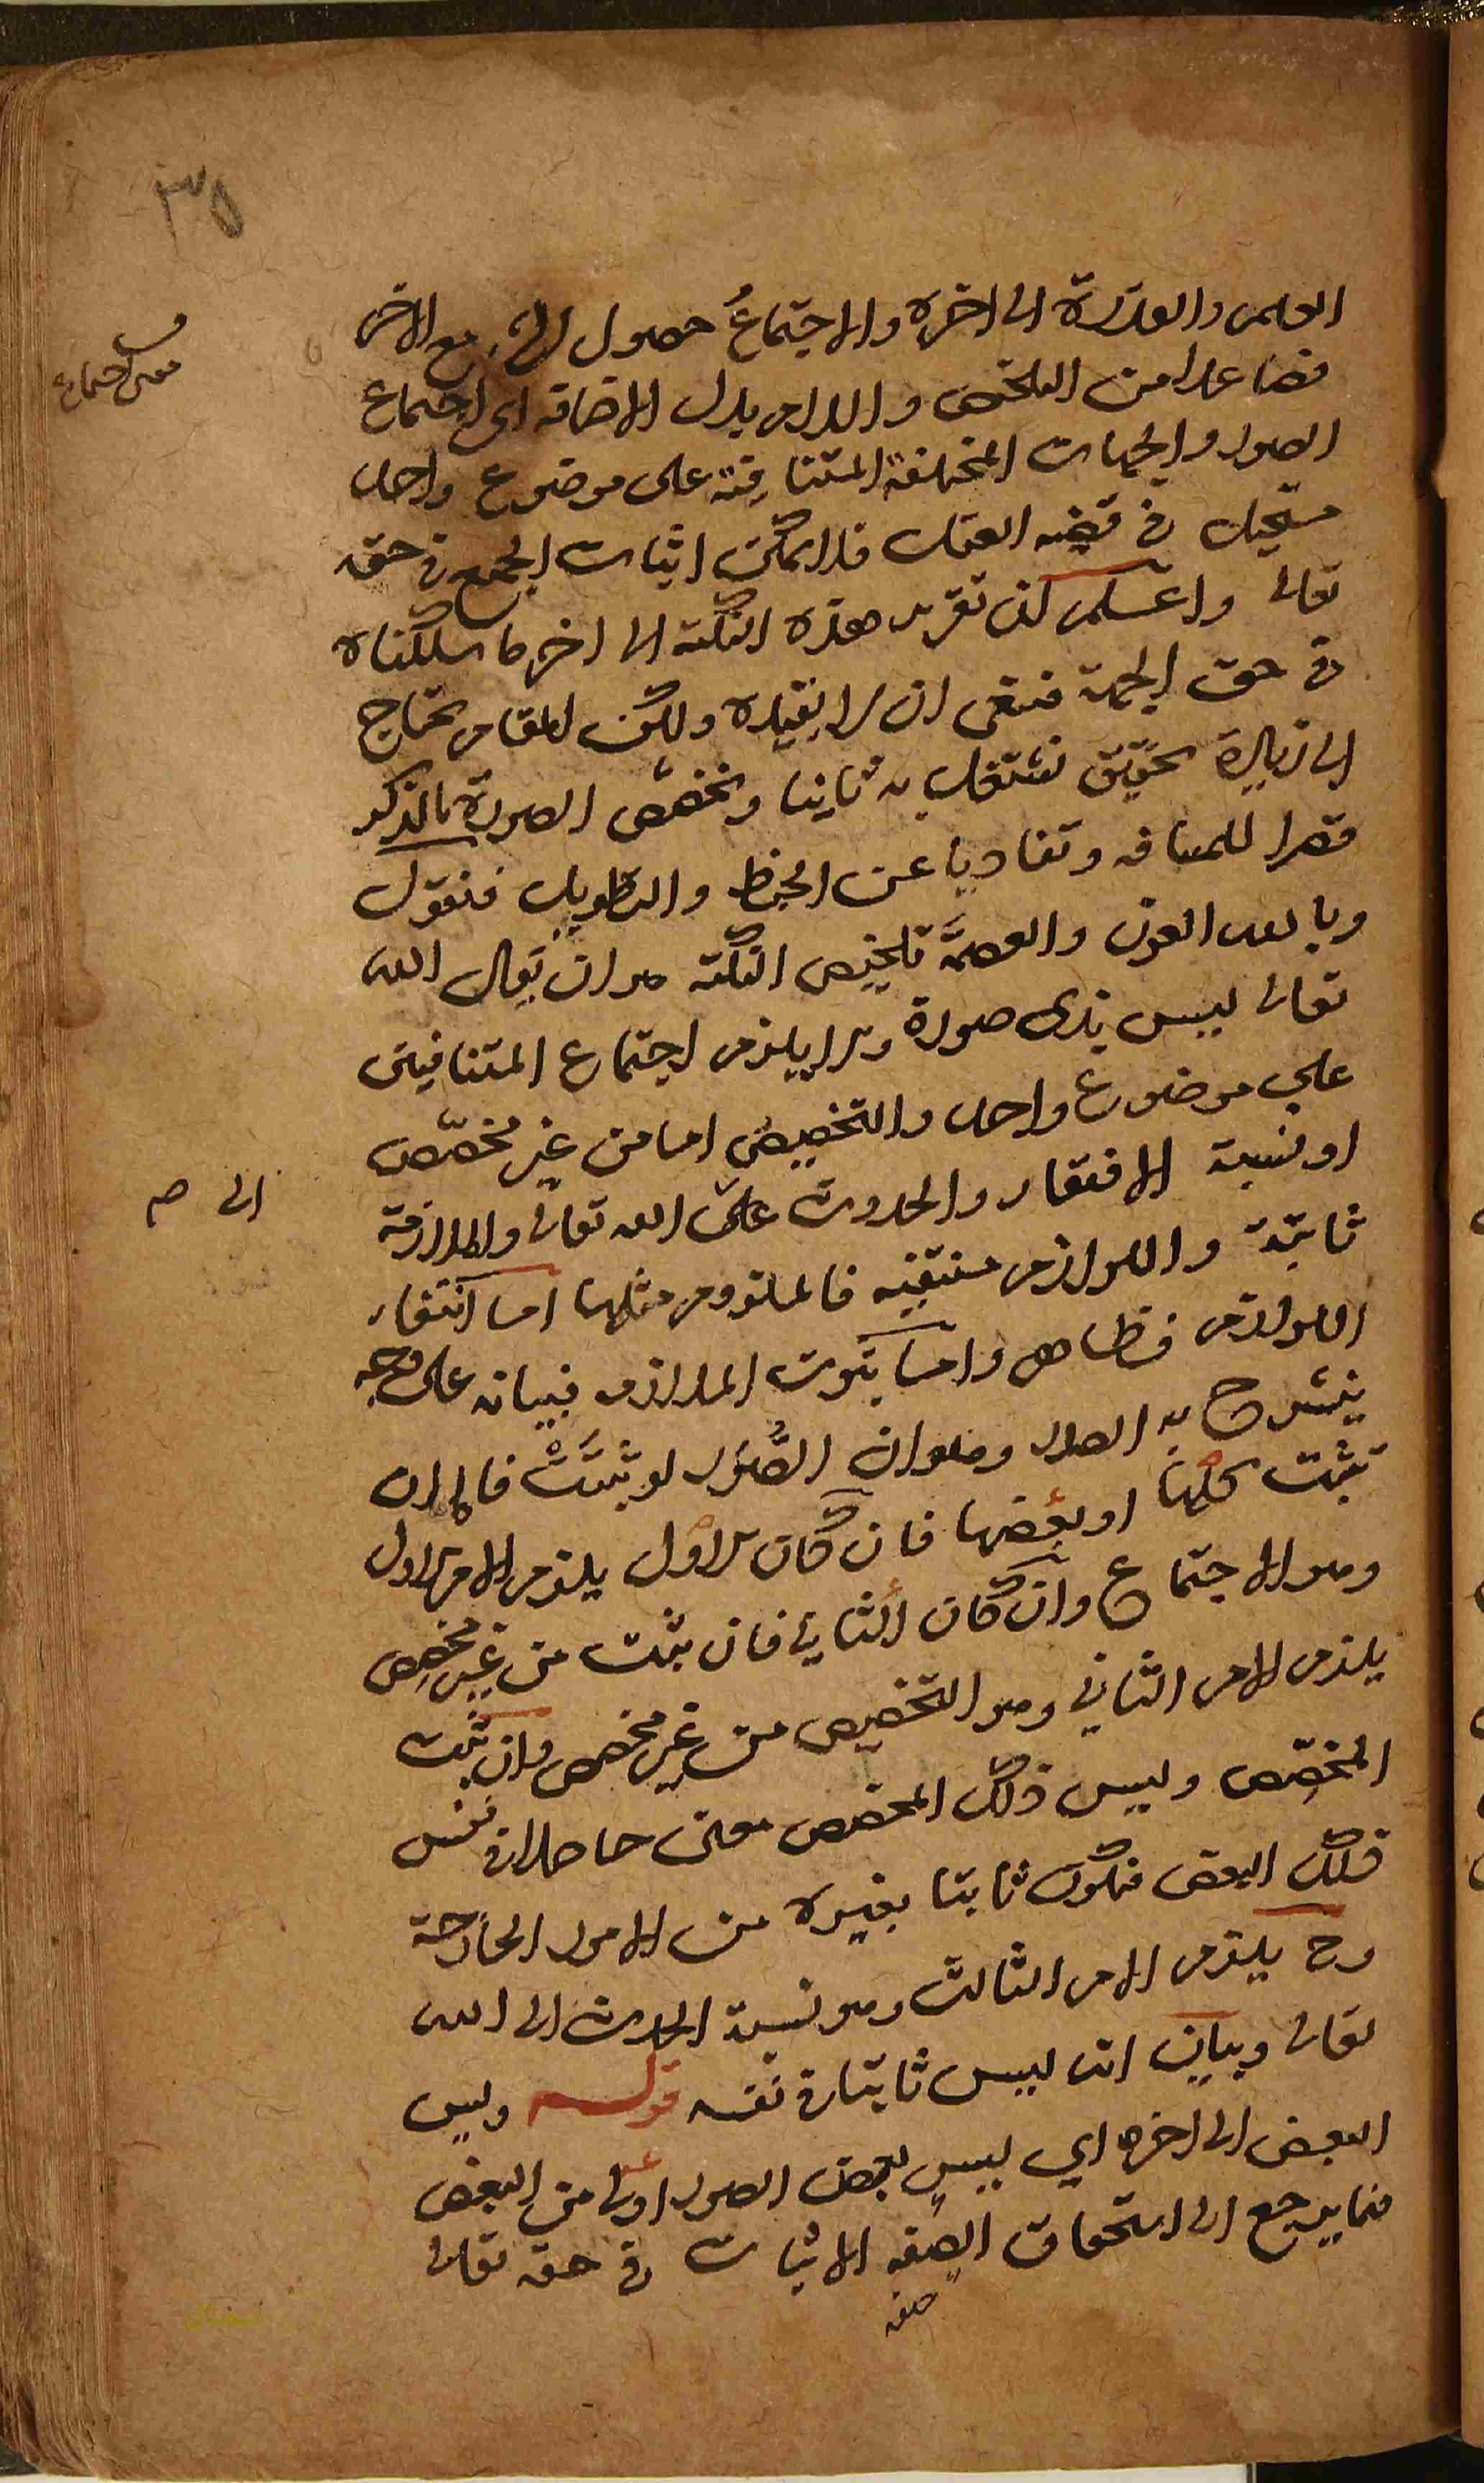 ٣٥
العلم والقدرة الى اخره والاجتماع حصول الشي مع الاخر
معنى اجتماع
فصاعدا من التلخيص واللام بدل الاضافة اى اجتماع
الصور والجهات المختلفة المتنافية على موضوع واحد
مستحيل فى قضية العقل فلا يمكن اثبات الجمع فى حقه
تعالى واعلم ان تقرير هذه النكتة الى اخر ما سلكناه
فى حق الجهة فينبغى ان لا نعيده ولكن المقام يحتاج
الى زيادة تحقيق نشتغل به ثانيا ونخصص الصورة بالذكر
قصرا للمسافة وتفاديا عن الخبط والتطويل فنقول
وبالله العون والعصمة تلخيص النكتة هو ان يقال الله
تعالى ليس بذى صورة والا يلزم اجتماع المتنافيين
على موضوع واحد والتخصيص اما من غير مخصص
او نسبة الافتقار والحدوث على الله تعالى والملازمة
الى صح
ثابتة واللوازم منتفية فالملزوم مثلها اما انتفاء
اللوازم فظاهر واما ثبوت الملازمة فبيانه على وجه
ينشرح به الصدر وهو ان الصُّوَر لو ثبتَتْ فاما ان
تثبت كلها او بعضها فان كان الاول يلزم الامر الاول
وهو الاجتماع وان كان الثانى فان ثبت من غير مخصص
يلزم الامر الثانى وهو التخصيص من غير مخصص وان ثبت
المخصّص وليس ذلك المخصص معنى حاصلا فى نفس
ذلك البعض فيكون ثابتا بغيره من الامور الخارجة
وح يلزم الامر الثالث وهو نسبة الحدوث الى الله
تعالى وبيان انه ليس ثابتا فى نفسه قوله وليس
البعض الى اخره اي ليس بعض الصور اولى من البعض
فيما يرجع الى استحقاق الصفة الاثبات فى حقه تعالى
صفة